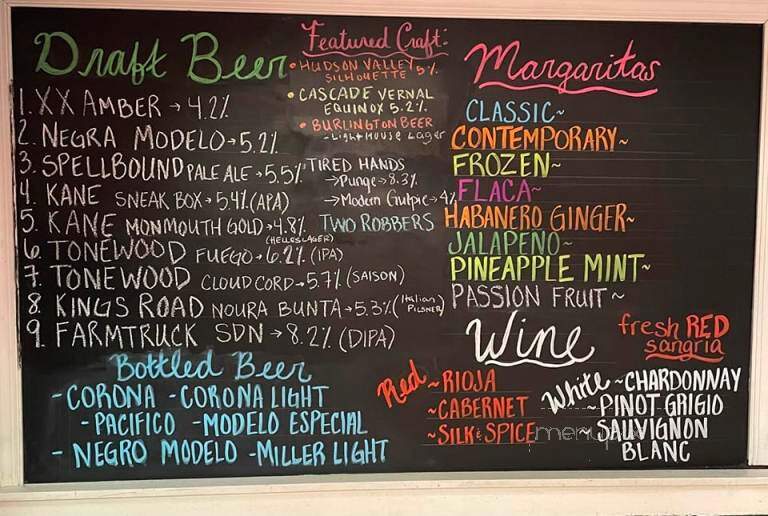 Draft Beer
1. XX AMBER → 4.2%
2. NEGRA MODELO → 5.2%
3. SPELLBOUND PALE ALE → 5.5%
4. KANE SNEAK BOX → 5.4% (APA)
5. KANE MONMOUTH GOLD → 4.8%
(HELLES LAGER)
6. TONEWOOD FUEGO → 6.2% (IPA)
7. TONEWOOD CLOUD CORD → 5.7% (SAISON)
8. KINGS ROAD NOURA BUNTA → 5.3% (Italian
PILSNER)
9. FARMTRUCK SDN → 8.2% (DIPA)
Featured Craft:
• HUDSON VALLEY
SILHOUETTE 5%
• CASCADE VERNAL
EQUINOX 5.2%
• BURLINGTON BEER
- LIGHTHOUSE Lager
TIRED HANDS
→ Punge → 8.3%
→ Modern Gulpic → 4%
TWO ROBBERS
Bottled Beer
- CORONA - CORONA LIGHT
- PACIFICO - MODELO ESPECIAL
- NEGRO MODELO - MILLER LIGHT
Margaritas
CLASSIC~
CONTEMPORARY~
FROZEN~
FLACA~
HABANERO GINGER~
JALAPEÑO~
PINEAPPLE MINT~
PASSION FRUIT~
Wine
fresh RED
sangria
Red ~RIOJA
~CABERNET
~SILK & SPICE
White ~CHARDONNAY
~PINOT GRIGIO
~SAUVIGNON
BLANC